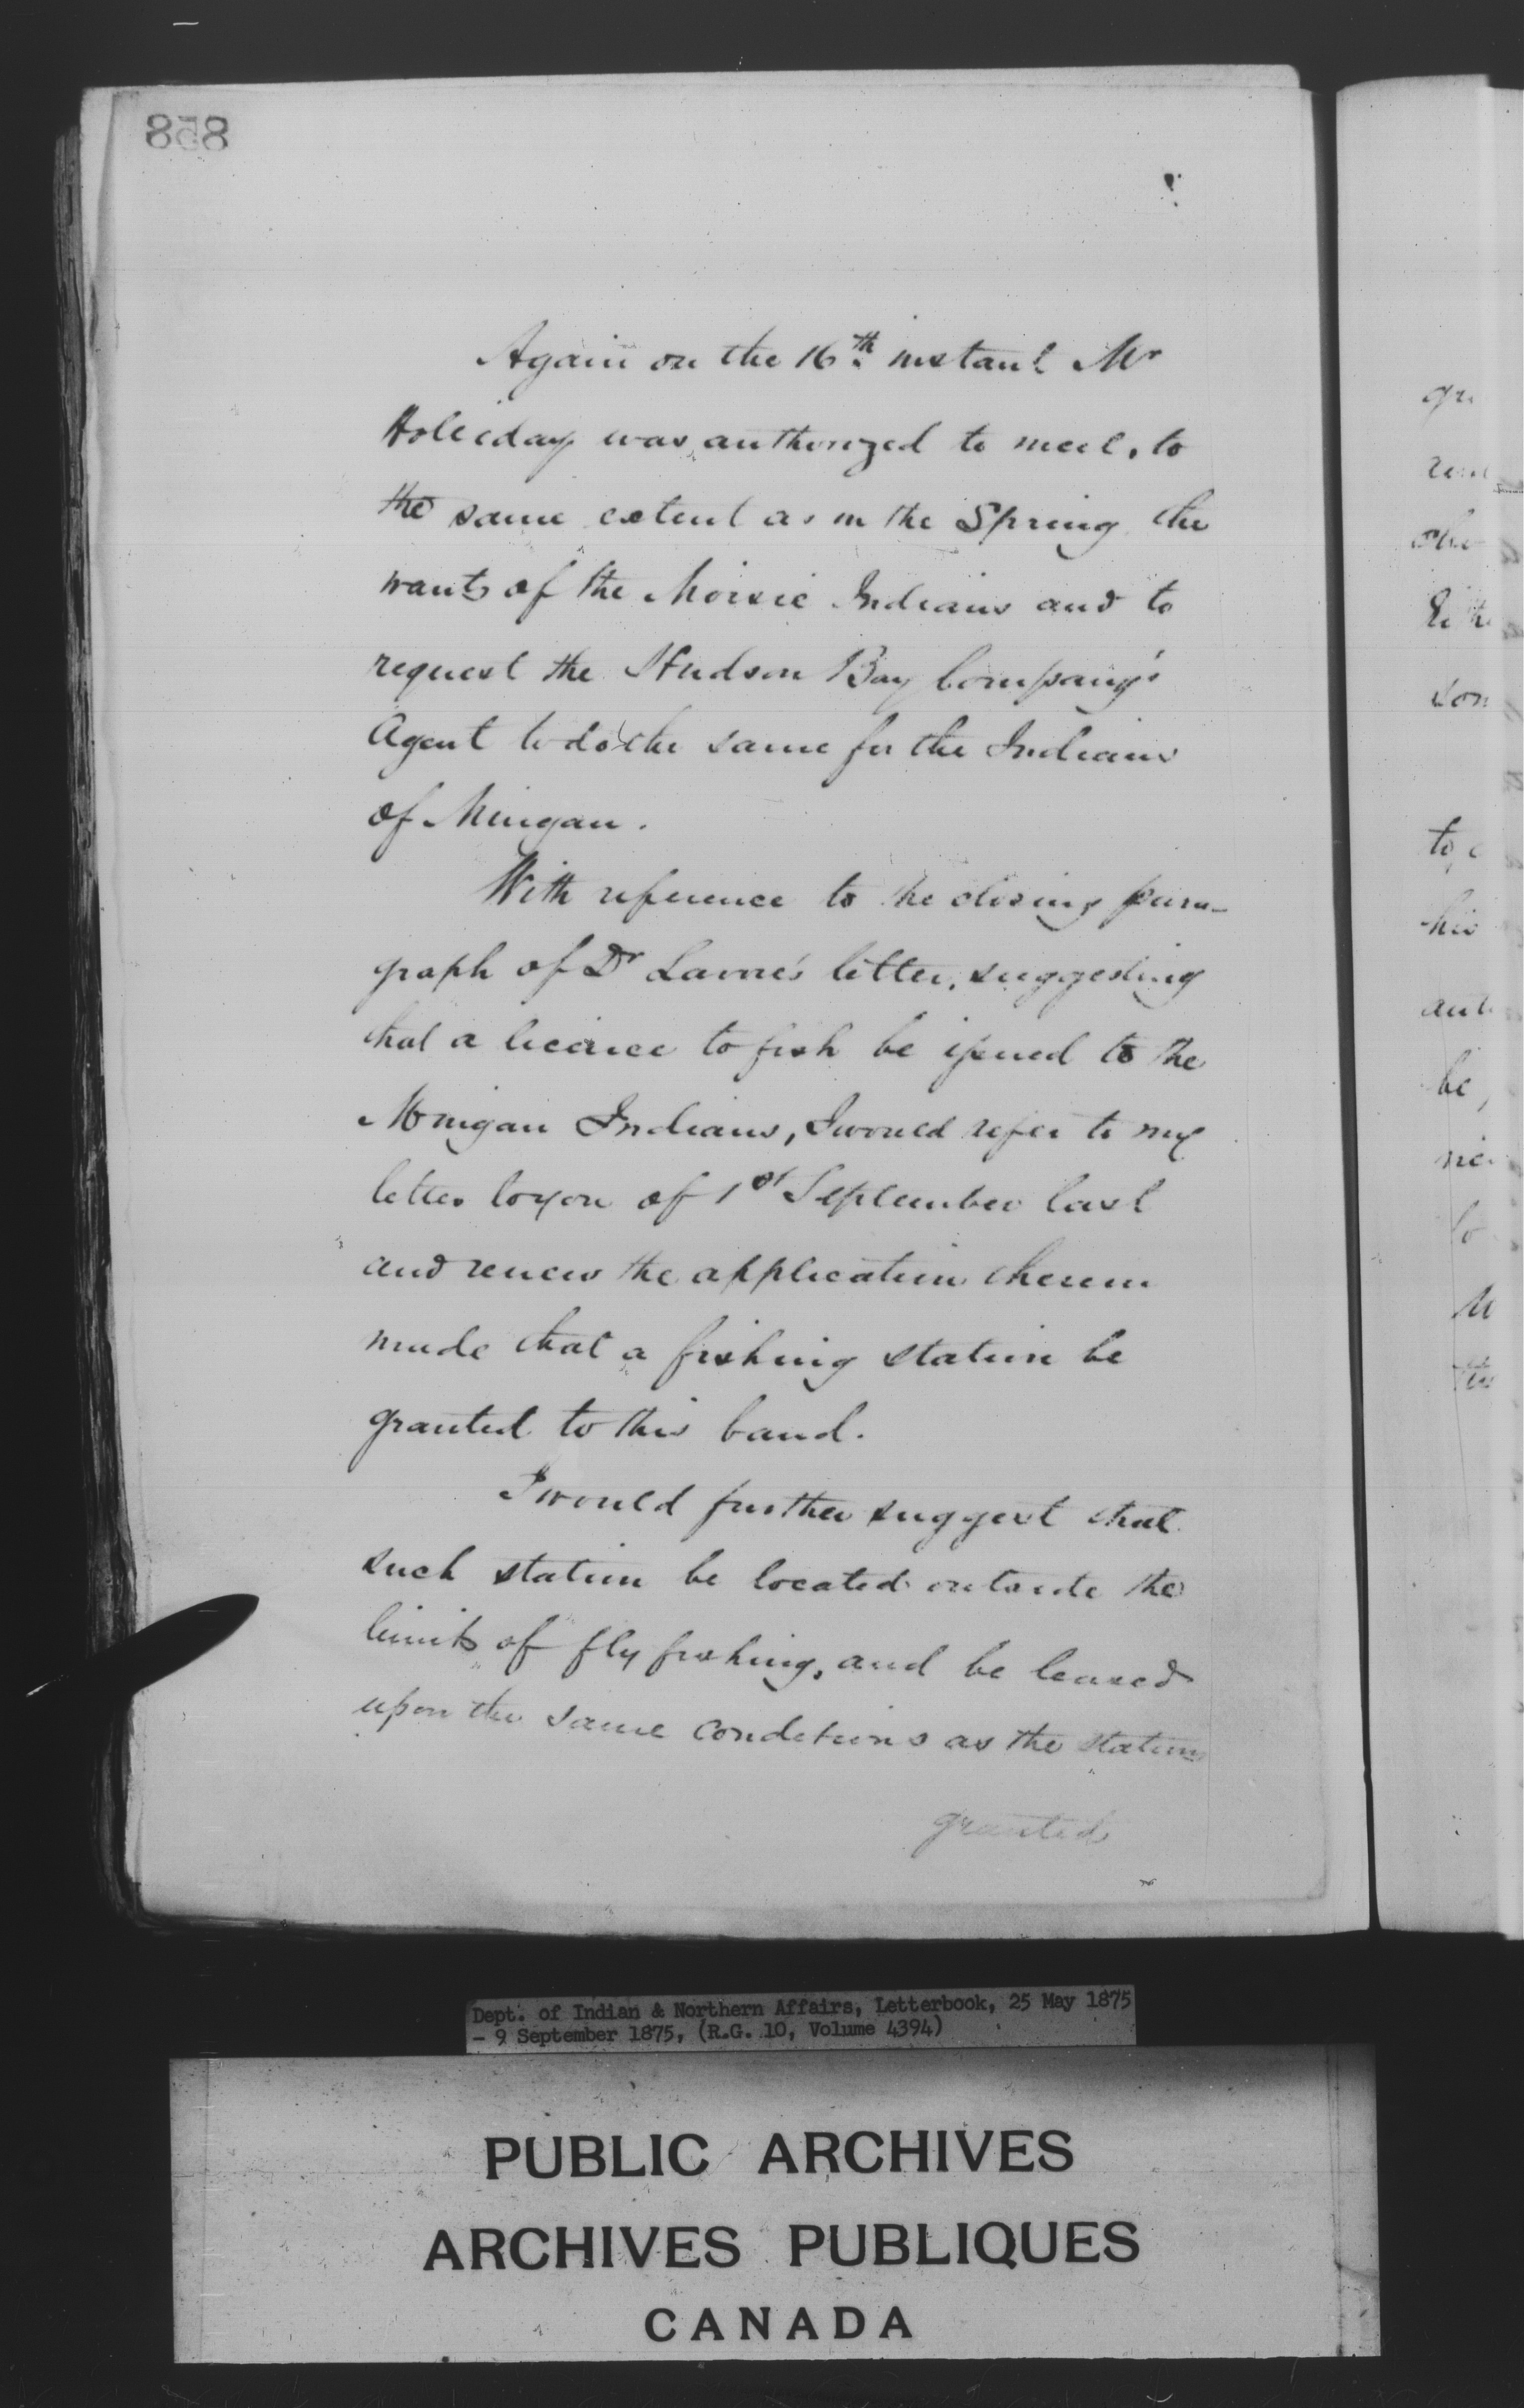 858
Again on the 16th instant Mr
Holliday was authorized to meet, to
the same extent as in the Spring the
wants of the Moisic Indians and to
request the Hudson Bay Company's
Agent to do the same for the Indians
of Mingan.
With reference to the closing para-
graph of Dr Lavoie's letter, suggesting
that a licence to fish be issued to the
Mingan Indians, I would refer to my
letter to you of 1st September last
and renew the application therein
made that a fishing station be
granted to this band.
I would further suggest that
such station be located outside the
limits of fly fishing, and be leased
upon the same conditions as the station
granted
Dept. of Indian & Northern Affairs, Letterbook, 25 May 1875
- 9 September 1875, (R.G. 10, Volume 4394)
PUBLIC ARCHIVES
ARCHIVES PUBLIQUES
CANADA